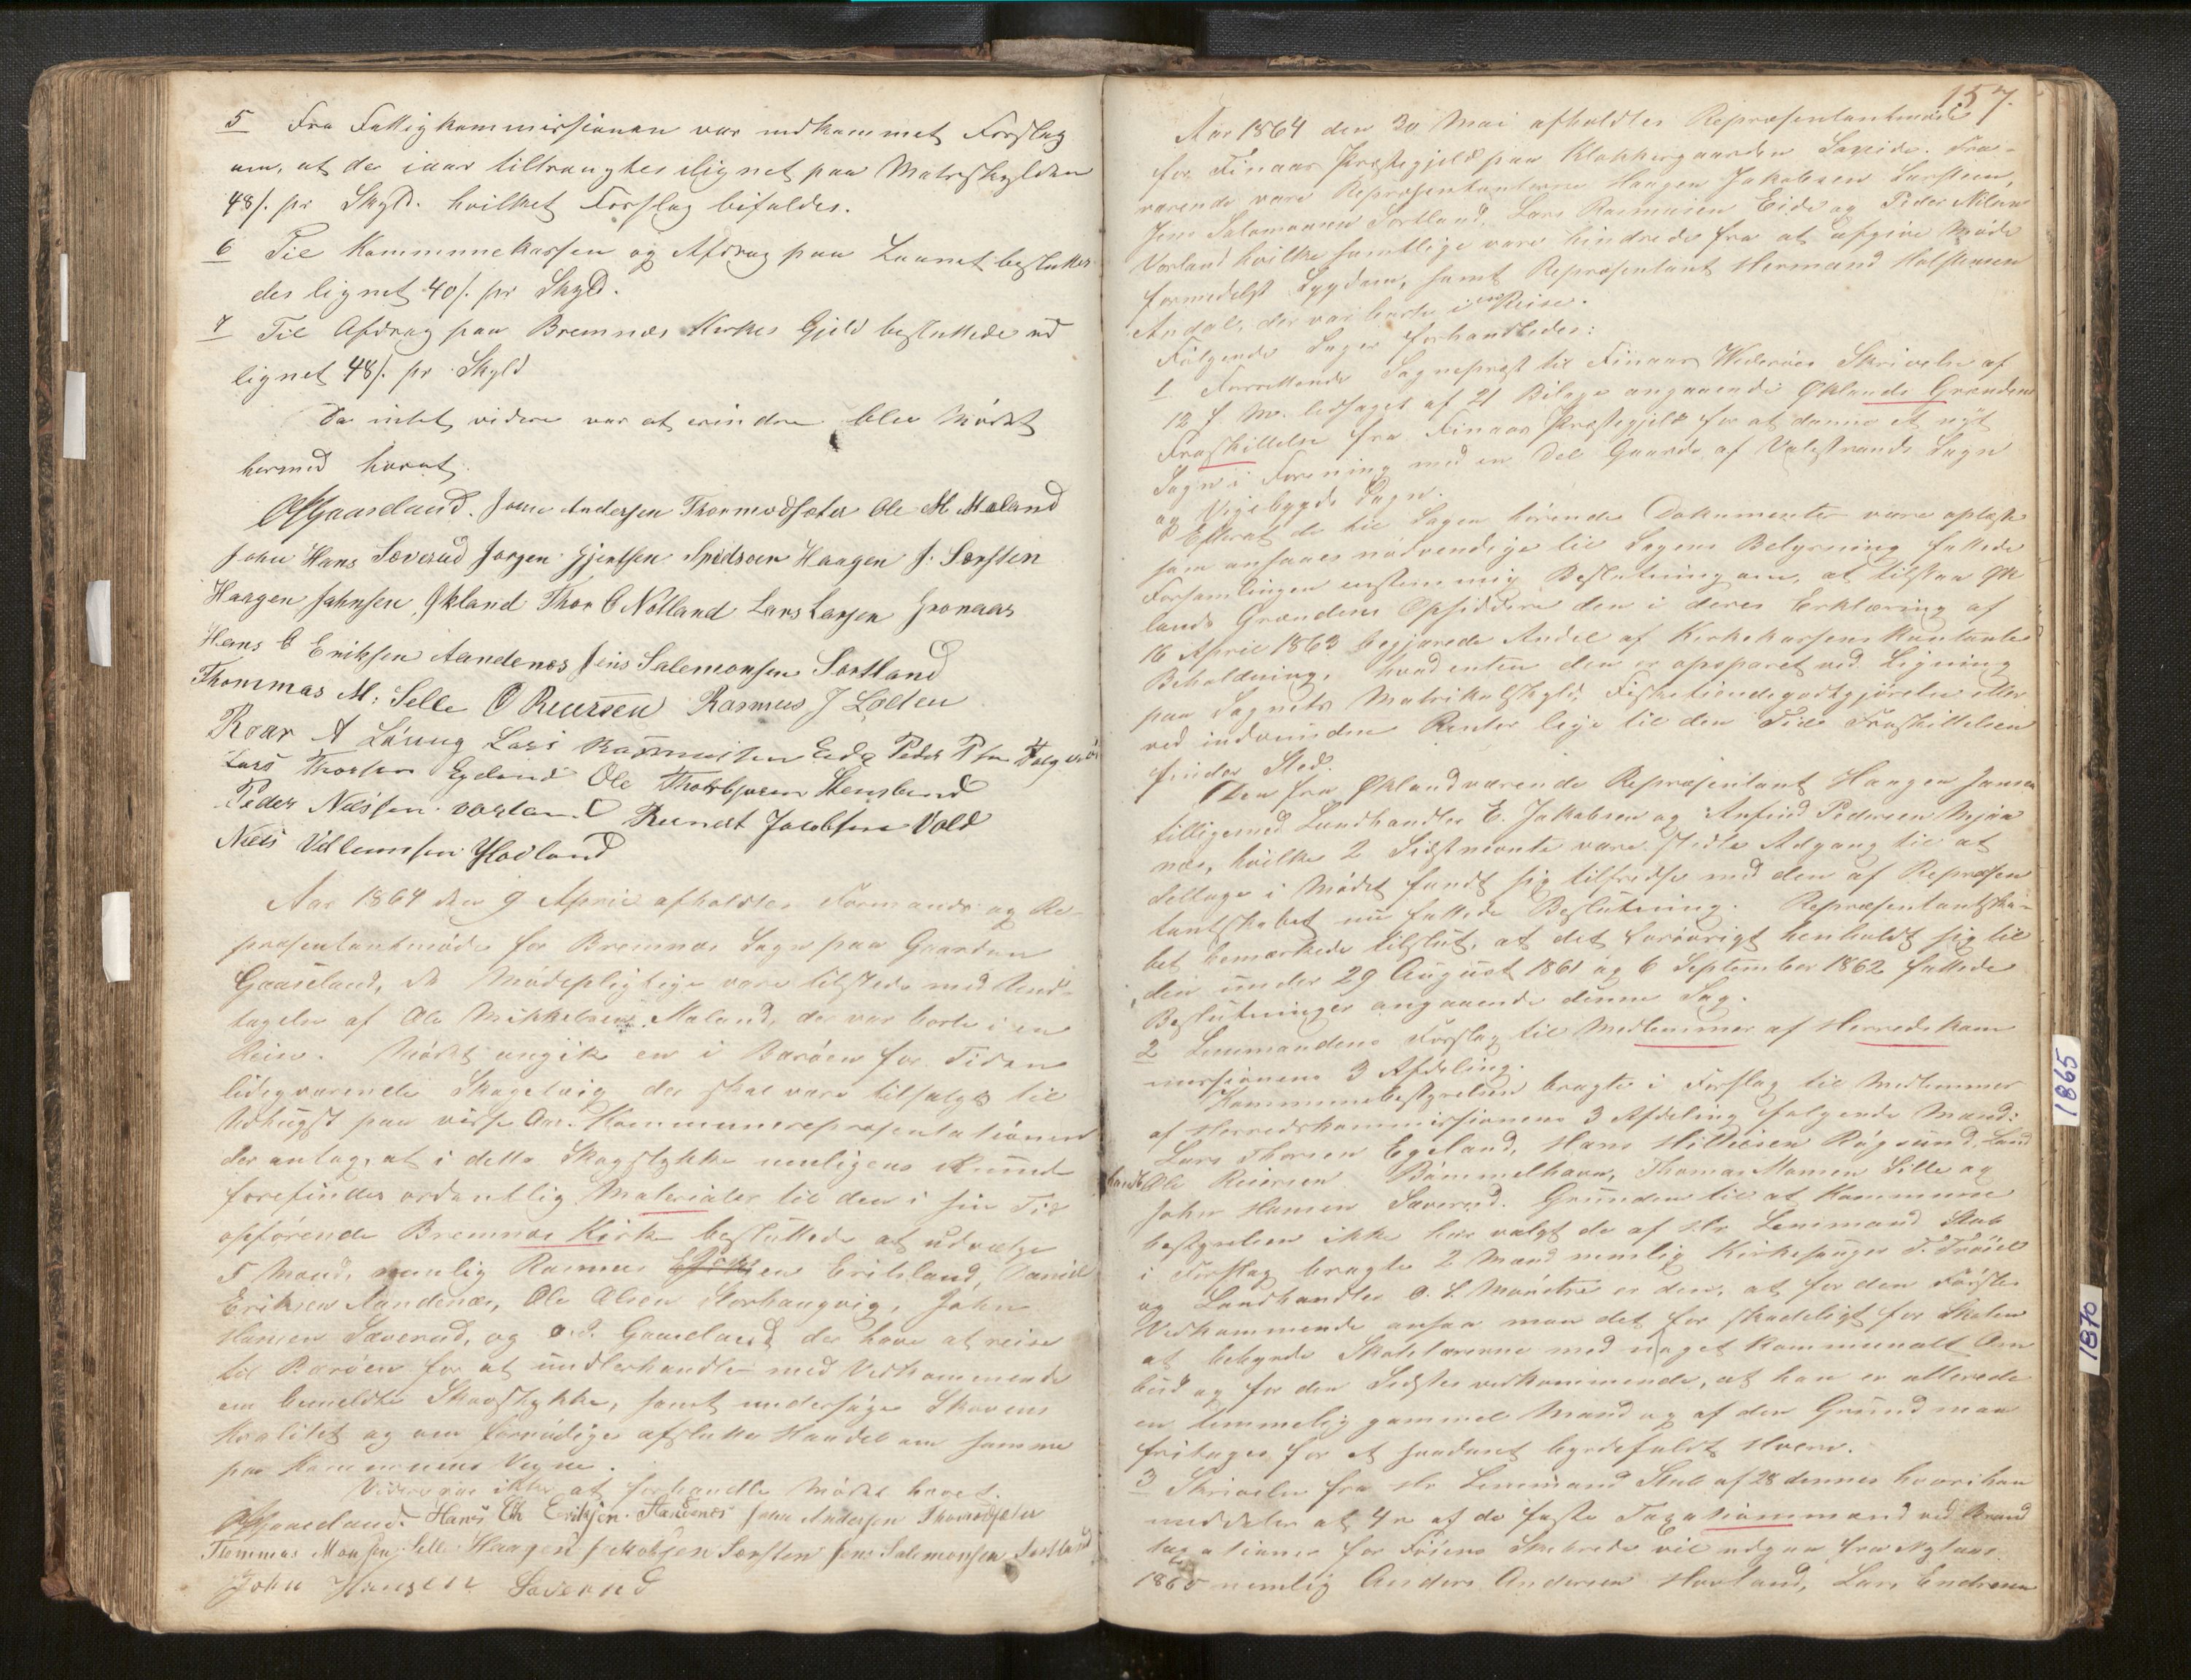 5 Fra Fattigkommissionen var indkommet Forslag
om, at der iaar tiltrængtes lignet paa Matrskylden
48/. pr Skyld. hvilket Forslag bifaldes.
6 Til Kommunekassen og Afdrag paa Laanet besluttes
des lignet 40/. pr Skyld.
7 Til Afdrag paa Bremnæs Kirkes Gjeld besluttede ud
lignet 48/. pr Skyld
Da intet videre var at erindre blev Mödet
hermed hævet.
Gaaseland. Jone Andersen Thormodsæter Ole M Maland
John Hans Soverud Jørgen Gjertsen Spidsöen Haagen J. Sørsteen
Haagen Jahnsen Økland Thor C Notland Lars Larsen Gronaas
Hans C Eriksen Aandenes Jens Salemonsen Sortland
Thommas M: Selle O Reiersen Rasmus J Lolten
Roar A Löning Lars Rasmussen Eide Peder P
Lars Thorsen Egeland Ole Thorbjornsen
Peder Nilssen vorland Berent Jacobsen Vold
Niels Villumsen Hovland
Aar 1864 den 9 April afholdtes Formands og Re-
præsentantmöde for Bremnæs Sogn paa Gaarden
Gaaseland, de Mödepligtige vare tilstede med Und-
tagelse af Ole Mikkelsen Maland, der var borte i en
Reise. Mödet angik en i Baröen for Tiden
der skal være tilsalgs til
Udhugst paa visse Aar. Kommunerepræsentationen
der antog, at i dette Skogstykke muligens kunde
forefindes ordentlig Materialer til den i sin Tid
opförende Bremnæs Kirke besluttede at udvælge
5 Mænd, nemlig Rasmus Eriksland, Daniel
Eriksen Aandenæs, Ole Olsen Storhaugvig, John
Hansen Sæverud, og O.S. Gaaseland der have at reise
til Baröen for at underhandle med Vedkommende
om bemeldte Skovstykke, samt undersöge Skovens
Kvalitet og om fornödiges afslutte Handel om samme
paa Kommunens Vegne.
Videre var ikke at forhandle Mödet hævet.
Gaaseland. Hans Chr Eriksen Aandenes Jone Andersen Thormodsæter
Tommas Monsen Selle Haagen Jakobsen Sørsteen Jens Salemonsen Sortland
John Hansen Soverud
157.
Aar 1864 den 30 Mai afholdtes Repræsentantmöde
for Finaas Præstegjeld paa Klokkergaarden Søreide. Fra-
værende vare Repræsentanterne Haagen Jakobsen Sørsteen,
Jens Salomonsen Sortland, Lars Rasmussen Eide og Peder Nilsen
Vorland hvilke samtlige vare hindrede fra at afgive Möde
formedelst Sygdom, samt Repræsentant Hermand Halstensen
Andal, der var borte i en Reise.
Fölgende Sager forhandledes:
1 Sognepræst til Finaas Skrivelse af
12 f. M. ledsaget af 21 Bilage angaaende Øklands Grændens
Fraskillelse fra Finaas Præstegjeld for at danne et nyt
Sogn i Forening med en Del Gaarde af Valestrands Sogn
og Vigebygds Sogn.
Efterat de til Sagen hörende Dokumenter vare oplæste
som ansaaes nödvendige til Sagens Belysning fattede
Forsamlingen enstemmig Beslutning om, at tilstaa Øk
lands Grændens Opsiddere den i deres Erklæring af
16 April 1863 begjærede Andel af Kirkekassens kontante
Beholdning, hvad enten den er opsparet ved Ligning
paa Sognets Matrikulskyld, Fisketiendegodtgjörelse eller
ved indvundne Renter lige til den Tid Fraskillelsen
finder Sted.
Den fra Økland værende Repræsentant Haagen Jansen
tilligemed Landhandler E. Jakobsen og Anfind Pedersen Mjaa
næs, hvilke 2 Sidstnevnte vare stedte Adgang til at
deltage i Mödet fandt sig tilfredse med den af Repræsen
tantskabet nu fattede Beslutning. Repræsentantska-
bet bemærkede tilslut, at det forövrigt henholdt sig til
den under 29 August 1861 og 6 September 1862 fattede
Beslutninger angaaende denne Sag.
2 Lensmandens Forslag til Medlemmer af Herredskom
missionens 3 Afdeling.
Kommunebestyrelsen bragte i Forslag til Medlemmer
af Herredskommissionens 3 Afdeling fölgende Mænd:
Lars Thorsen Egeland, Hans Rögsund, Land
handl. Ole Reiersen Bömmelhavn, Thomas Monsen Selle og
John Hansen Sæverud. Grunden til at Kommune
bestyrelsen ikke har valgt de af Hr Lensmand Stub
i Forslag bragte 2 Mænd nemlig Kirkesanger T.
og Landhandler O. S. er den, at for den Förstes
Vedkommende ansaa man det for skadeligt for Skolen
at bebyrde Skolelærerne med noget kommunalt Om
bud og for den Sidstes vedkommende, at han er allerede
en temmelig gammel Mand og af den Grund maa
fritages for et saadant byrdefuldt Hverv.
3 Skrivelse fra Hr Lensmand Stub af 28 dennes hvori han
meddeler at 4re af de faste Taxationsmænd ved Brand
taxationer for Föiens Skibrede vil udgaa fra Nytaar
1865 nemlig Anders Andersen Hovland, Lars Endresen
1865
1870